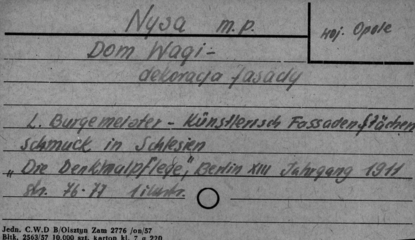 Nysa m.p.
Woj. Opole
Dom Wagi -
dekoracja fasady
L. Burgemeister - Künstlerisch Fassadenflächen
schmuck in Schlesien
"Die Denkmalpflege", Berlin XIII Jahrgang 1911
str. 76-77 1 ilustr.
Jedn. C.W.D B/Olsztyn Zam 2776 /on/57
Błsk. 2563/57 10.000 szt. karton kl. 7 a 220